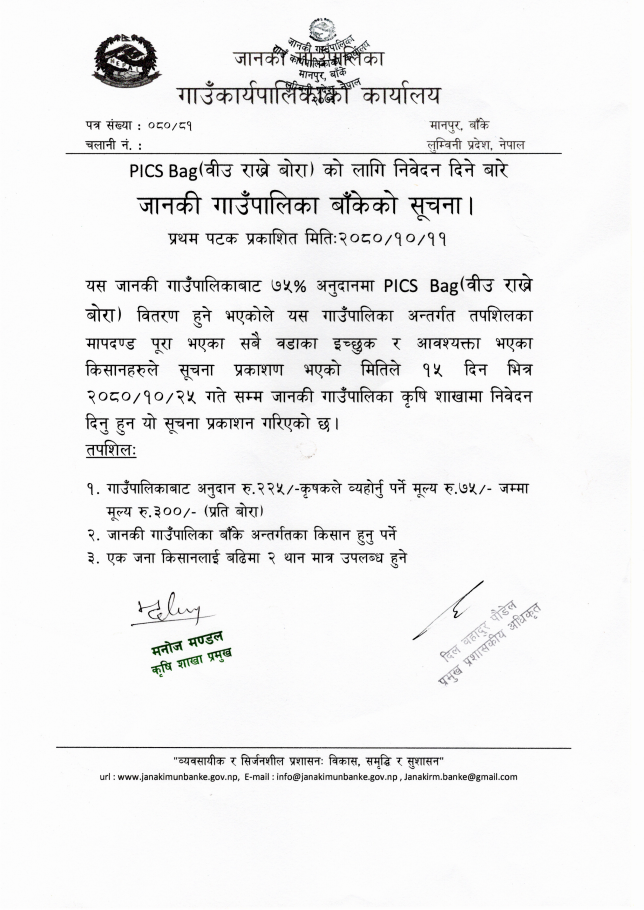 जानकी गाउँपालिका
गाउँकार्यपालिकाको कार्यालय
जानकी गाउँपालिका
गाउँ कार्यपालिकाको कार्यालय
मानपुर, बाँके
लुम्बिनी प्रदेश, नेपाल
२०७३
पत्र संख्या : ०८०/८१
मानपुर, बाँके
चलानी नं. :
लुम्विनी प्रदेश, नेपाल
PICS Bag(वीउ राख्ने बोरा) को लागि निवेदन दिने बारे
जानकी गाउँपालिका बाँकेको सूचना।
प्रथम पटक प्रकाशित मितिः२०८०/१०/११
यस जानकी गाउँपालिकाबाट ७५% अनुदानमा PICS Bag(वीउ राख्ने
बोरा) वितरण हुने भएकोले यस गाउँपालिका अन्तर्गत तपशिलका
मापदण्ड पूरा भएका सबै वडाका इच्छुक र आवश्यक्ता भएका
किसानहरुले सूचना प्रकाशण भएको मितिले १५ दिन भित्र
२०८०/१०/२५ गते सम्म जानकी गाउँपालिका कृषि शाखामा निवेदन
दिनु हुन यो सूचना प्रकाशन गरिएको छ।
तपशिलः
१. गाउँपालिकाबाट अनुदान रु.२२५/-कृषकले व्यहोर्नु पर्ने मूल्य रु.७५/- जम्मा
मूल्य रु.३००/- (प्रति बोरा)
२. जानकी गाउँपालिका बाँके अन्तर्गतका किसान हुनु पर्ने
३. एक जना किसानलाई बढिमा २ थान मात्र उपलब्ध हुने
मनोज मण्डल
कृषि शाखा प्रमुख
दिल बहादुर पौडेल
प्रमुख प्रशासकीय अधिकृत
"व्यवसायीक र सिर्जनशील प्रशासनः विकास, समृद्धि र सुशासन"
url : www.janakimunbanke.gov.np, E-mail : info@janakimunbanke.gov.np , Janakirm.banke@gmail.com